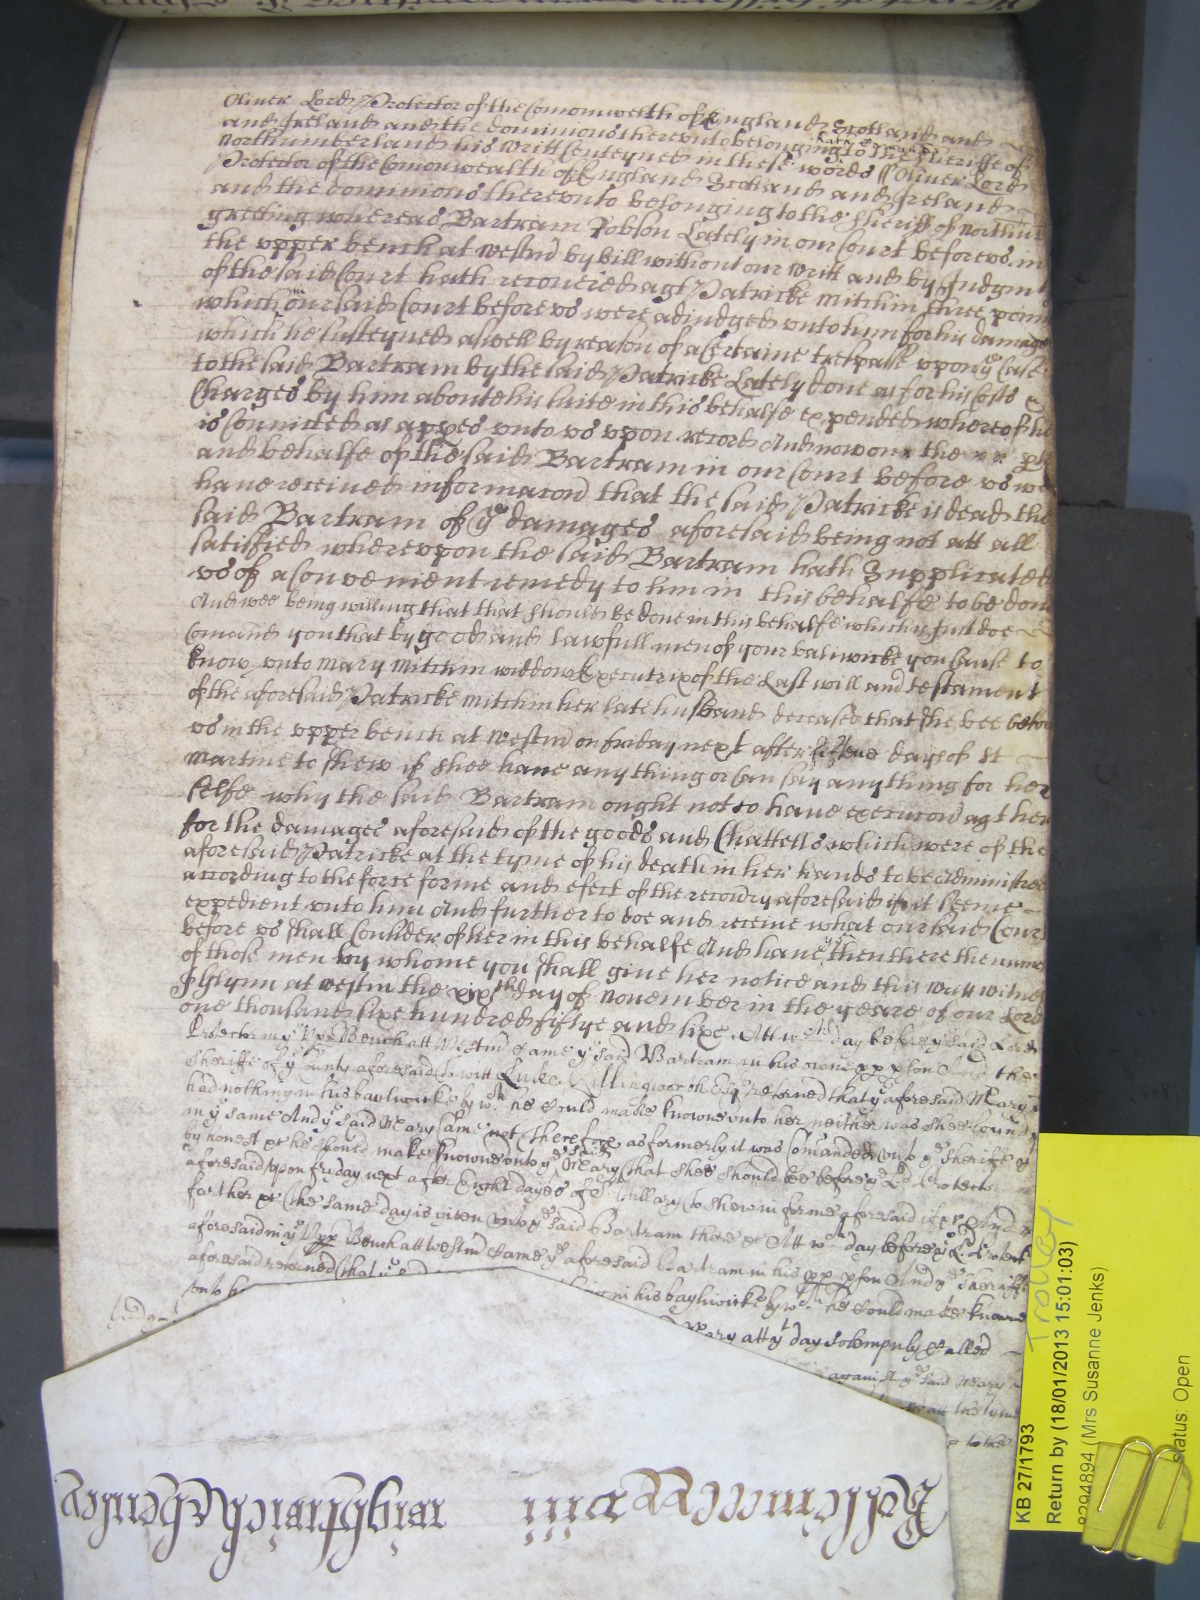 Oliver Lord Protector of the Comonwelth of England Scotland and
and Ireland and the dominions therevnto belonging to the Sheriffe of
hath comanded
Northumberland his writt Conteyned in these words ss Oliver Lord
Protector of the Comonwealth of England Scotland and Ireland
and the dominions therevnto belonging to the Sheriff of Northum
greeting whereas Bartram Robson Lately in our Court before vs in
the vpper bench at Westm by bill without our writt and by Judgmt
of the said Court hath recouered agt Patricke Mitchin three poun
which in our said Court before vs were adiudged vnto him for his damage
which he susteyned aswell by reason of a Certaine trespasse vpon ye Case
to the said Bartram by the said Patricke Lately done as for his Costs &
Charges by him aboute his suite in this behalfe expended whereof he
is Convicted as appes vnto vs vpon record And now on the
and behalfe of the said Bartram in our Court before vs we
haue receiued informacon that the said Patricke is dead the
said Bartram of ye damages aforesaid being not att all
satisfied wherevpon the said Bartram hath Supplicated
vs of a Convenient remedy to him in this behalfe to be don
And wee being willing that that should be done in this behalfe which is Just doe
Comand you that by good and lawfull men of your baliwicke you Cause to
know vnto Mary Mitchin widdow Executrix of the Last will and testament
of the aforesaid Patricke Mitchin her late husband deceased that she bee befor
vs in the vpper bench at Westm on friday next after fiftene dayes of St
Martine to shew if shee haue any thing or Can say any thing for her
selfe why the said Bartram ought not to haue execucon agt her
for the damages aforesaid of the goods and Chattells which were of the
aforesaid Patricke at the tyme of his death in her hands to be Administred
according to the force forme and efect of the recouery aforesaid if it seeme
expedient vnto him And further to doe and receiue what our said Cour
before vs shall Consider of her in this behalfe And haue then there the names
of those men by whome you shall giue her notice and this writt witnes
J Glynn at Westm the xixth day of November in the yeare of our Lord
one thousand sixe hundred fiftye and sixe Att wch day before ye said Lord
Protector in ye Vpp Bench att Westm Came ye said Bartram in his owne pp pson And the
Sheriffe of ye County aforesaid to witt Luke Killingworth Esqr retorned that ye aforesaid Mary
had nothing in his baylwicke by wch he Could make knowne vnto her neither was shee found
in ye same And ye said Mary Came not Therefore as formerly it was Comanded vnto ye Sheriffe yt
said
by honest &c he should make knowne vnto ye Mary that shee should bee before ye Ld Protector
aforesaid vpon friday next after Eight dayes of St Hillary to shew in forme aforesaid if &c And
further &c the same day is given vnto ye said Bartram there &c Att wch day before ye Ld Protect
aforesaid in ye Vpp Bench att Westm Came ye aforesaid Bartram in his pp pson And ye Sheriff
aforesaid retorned that ye
vnto h in his baylwicke by wch he Could make knowne
Mary att yt day solempnly Called
against ye said Mary
to the
KB 27/1793
Return by (18/01/2013 15:01:03)
8294894 (Mrs Susanne Jenks)
Status: Open
Trolley